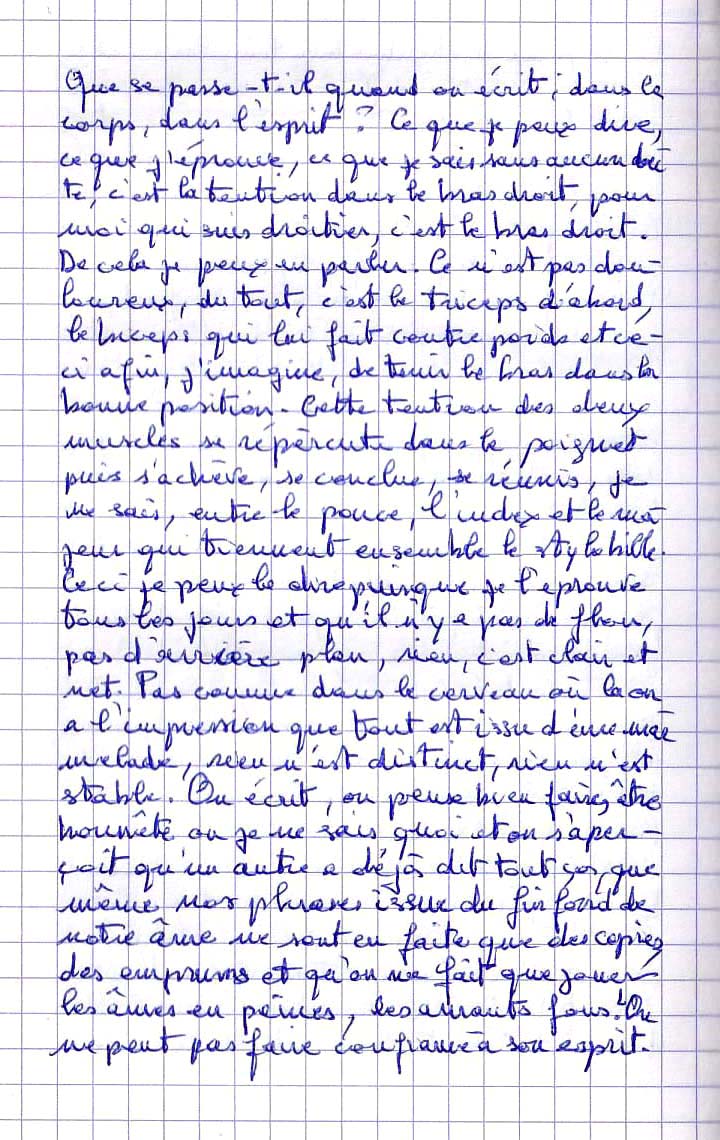 Que se passe-t-il quand on écrit, dans le
corps, dans l'esprit ? Ce que je peux dire,
ce que j'éprouve, ce que je sais sans aucun dou
te, c'est la tention dans le bras droit, pour
moi qui suis droitier, c'est le bras droit.
De cela je peux en parler. Ce n'est pas dou-
loureux, du tout, c'est le triceps d'abord,
le biceps qui lui fait contre poids et ce-
ci afin, j'imagine, de tenir le bras dans la
bonne position. Cette tention des deux
muscles se répercute dans le poignet
puis s'achève, se conclue, se réunis, je
ne sais, entre le pouce, l'index et le ma
jeur qui tiennent ensemble le stylo bille.
Ceci je peux le dire puisque je l'éprouve
tous les jours et qu'il n'y a pas de flou,
pas d'arrière plan, rien, c'est clair et
net. Pas comme dans le cerveau où la on
a l'impression que tout est issu d'une mar
melade, rien n'est distinct, rien n'est
stable. On écrit, on pense bien faire, être
honnête ou je ne sais quoi et on s'aper-
çoit qu'un autre a déjà dit tout ça, que
même nos phrases issue du fin fond de
notre âme ne sont en faite que des copies
des empruns et qu'on ne fait que jouer
les âmes en peines, les amants fous. On
ne peut pas faire confiance à son esprit.